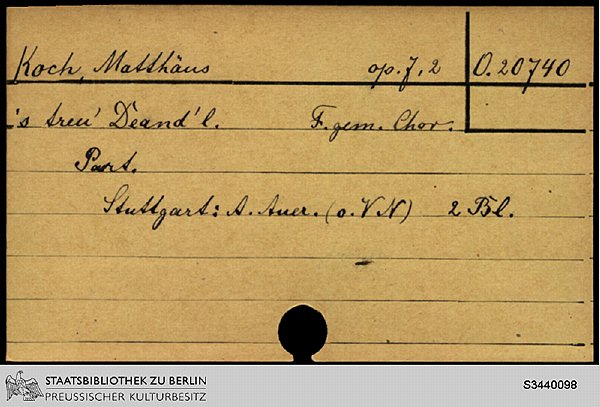 Koch, Matthäus op. 7, 2 O. 20740
's treu' Deand'l. F. gem. Chor.
Part.
Stuttgart: A. Auer. (o. V N) 2 Bl.
STAATSBIBLIOTHEK ZU BERLIN
PREUSSISCHER KULTURBESITZ
S3440098